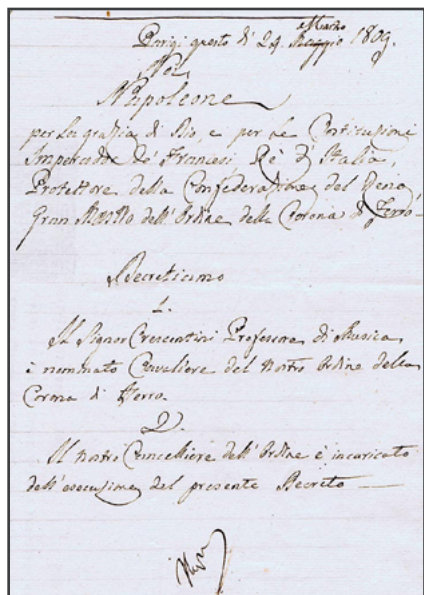 Marzo
Parigi questo dì 29. Maggio 1809.
Noi
Napoleone
per la grazia di Dio, e per le Costituzioni
Imperadore de' Francesi Rè d'Italia,
Protettore della Confederazione del Reno,
Gran Maestro dell'Ordine della Corona di Ferro
Decretiamo
1.
Il Signor Crescentini Professore di Musica,
è nominato Cavaliere del Nostro Ordine della
Corona di Ferro.
2.
Il nostro Cancelliere dell'Ordine è incaricato
dell'esecuzione del presente Decreto